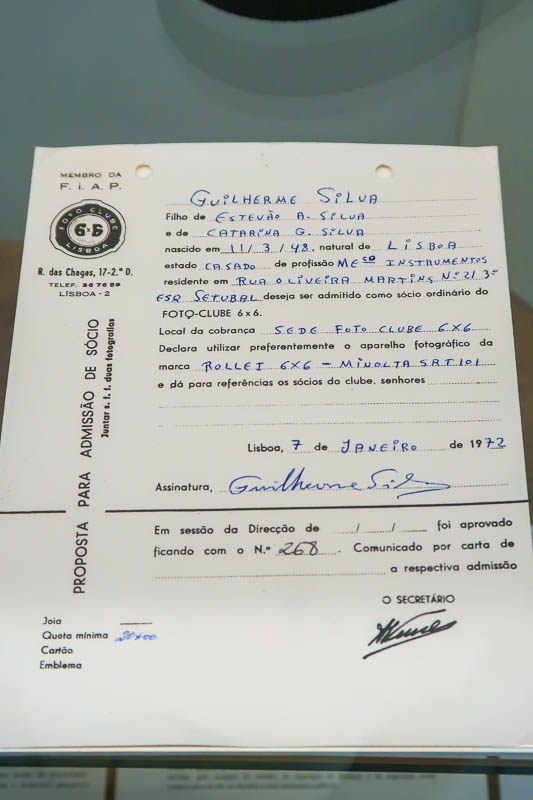 MEMBRO DA
F. I. A. P.
FOTO CLUBE
6x6
LISBOA
R. das Chagas, 17-2.º D.
TELEF. 36 76 89
LISBOA - 2
PROPOSTA PARA ADMISSÃO DE SÓCIO
Juntar s. f. f. duas fotografias
GUILHERME SILVA
Filho de ESTEVÃO A. SILVA
e de CATARINA G. SILVA
nascido em 11/3/48, natural de LISBOA
estado CASADO de profissão MECº INSTRUMENTOS
residente em RUA OLIVEIRA MARTINS Nº 21 3º
ESQ SETUBAL deseja ser admitido como sócio ordinário do
FOTO-CLUBE 6 x 6.
Local da cobrança SEDE FOTO CLUBE 6X6
Declara utilizar preferentemente o aparelho fotográfico da
marca ROLLEI 6X6 - MINOLTA SRT 101
e dá para referências os sócios do clube, senhores
Lisboa, 7 de JANEIRO de 1972
Assinatura, Guilherme Silva
Em sessão da Direcção de / / foi aprovado
ficando com o N.º 268. Comunicado por carta de
a respectiva admissão
O SECRETÁRIO
Joia
Quota mínima 20$00
Cartão
Emblema